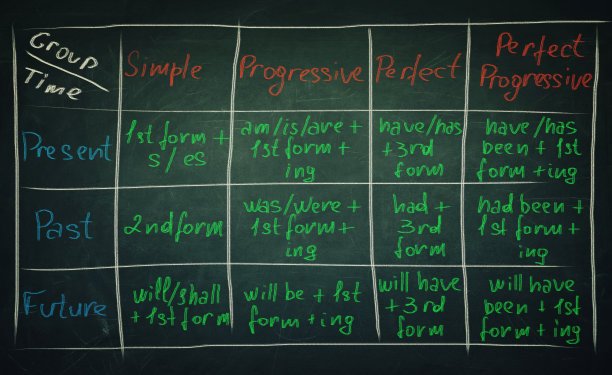 Group
Time
Simple
Progressive
Perfect
Perfect
Progressive
Present
1st form +
s/es
am/is/are +
1st form +
ing
have/has
+3rd
form
have/has
been + 1st
form +ing
Past
2nd form
was/were +
1st form+
ing
had +
3rd
form
had been +
1st form +
ing
Future
will/shall
+1st form
will be + 1st
form +ing
will have
+3rd
form
will have
been + 1st
form + ing